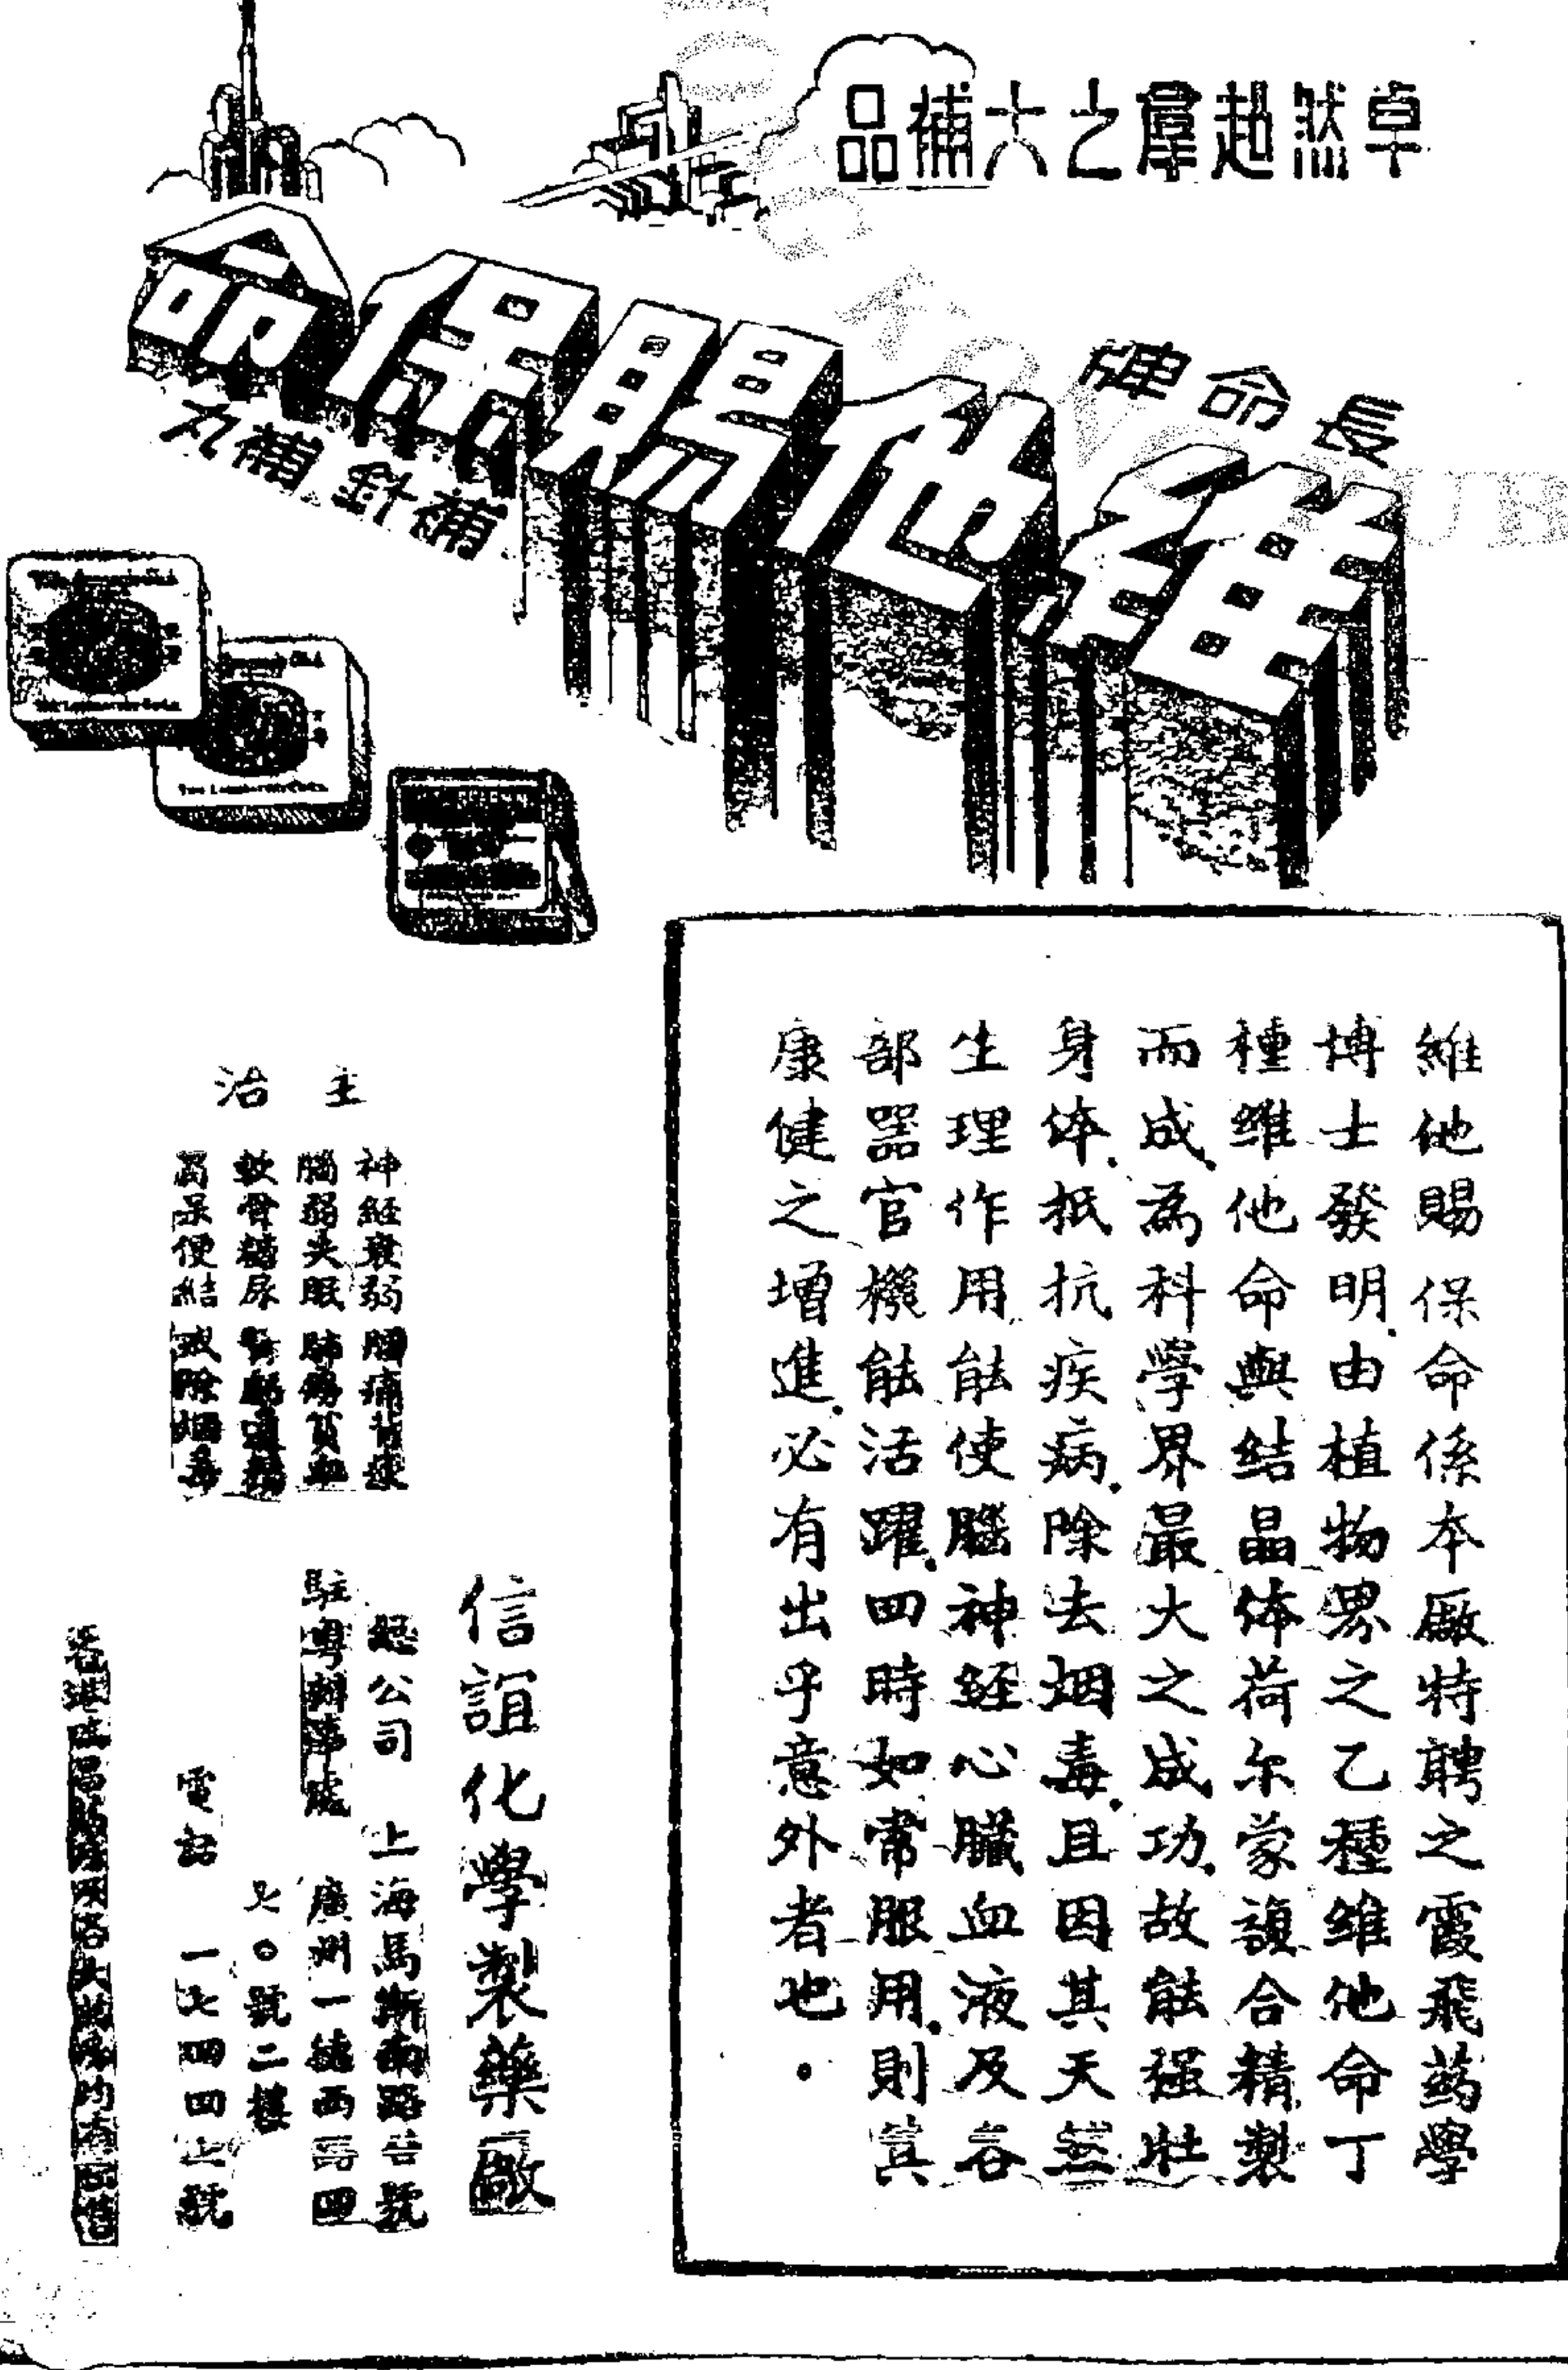 卓然超羣之大補品
長命牌
維他賜保命
補針 補丸
維他賜保命係本廠特聘之霞飛葯學
博士發明.由植物界之乙種維他命丁
種維他命與结晶体荷尔蒙複合精製
而成.為科學界最大之成功.故能强壯
身体.抵抗疾病.除去烟毒.且因其天然
生理作用能使腦神経心臟血液及各
部器官機能活躍.四時如常服用.則其
康健之增進.必有出乎意外者也。
主治
神経衰弱
腦弱失眠 肺癆貧血
軟骨糖尿
胃呆便結 戒除烟毒
信誼化學製藥廠
總公司 上海馬斯南路 號
駐粤辦事處 廣州一德西路四
七〇號二樓
電話 一七四四 號